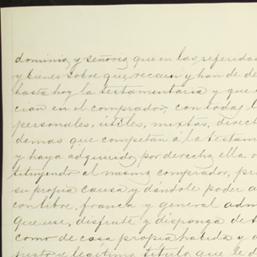 dominio, y señores, que en las referidas
y bienes sobre que recaen y han de de
hasta hoy la testamentaria y que
cian en el comprador, con todas l
personales, útiles, mixtas, direct
demas que competan á la testam
y haya adquirido, por derecho, ella o
tituyendo al mismo comprador, pr
su propia causa y dándole poder a
con libre, franca y general adm
que use, disfrute y disponga de t
como de cosa propia habida y a
justo y legítimo título que le d